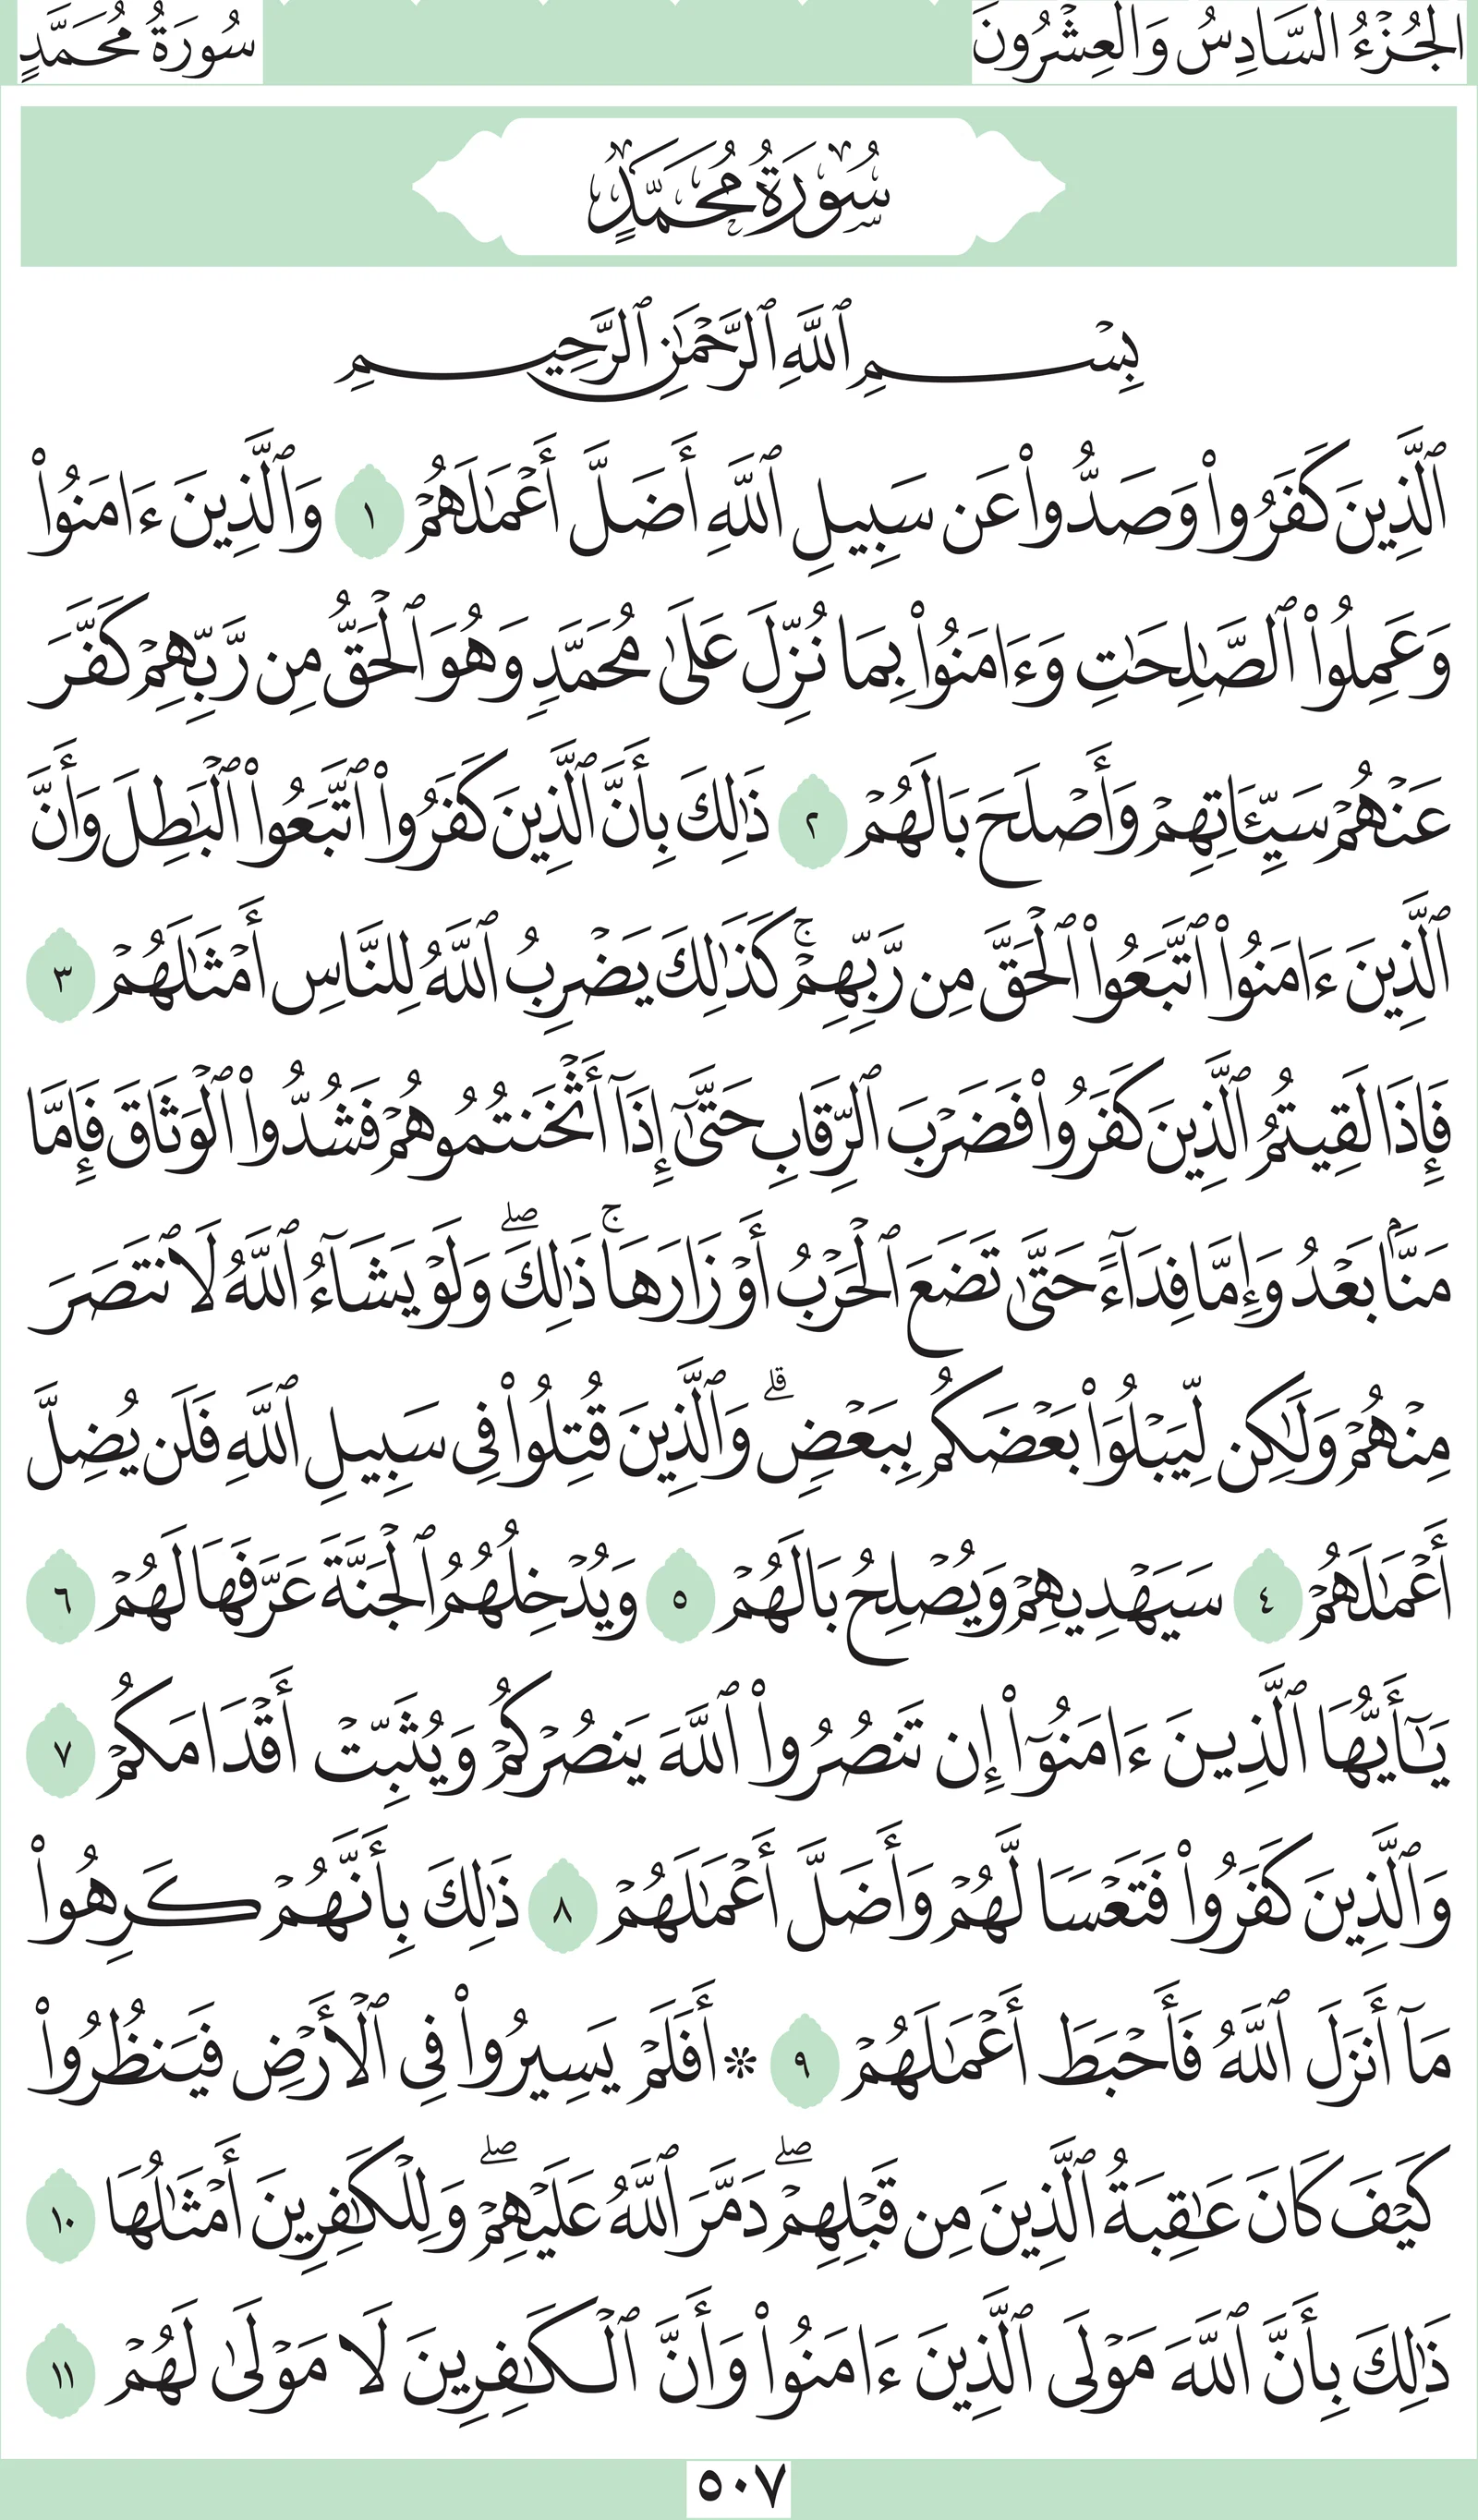 الجُزْءُ السَّادِسُ وَالعِشْرُونَ
سُورَةُ مُحَمَّدٍ
سُورَةُ مُحَمَّدٍ
بِسْمِ ٱللَّهِ ٱلرَّحْمَٰنِ ٱلرَّحِيمِ
ٱلَّذِينَ كَفَرُوا۟ وَصَدُّوا۟ عَن سَبِيلِ ٱللَّهِ أَضَلَّ أَعْمَٰلَهُمْ ١ وَٱلَّذِينَ ءَامَنُوا۟
وَعَمِلُوا۟ ٱلصَّٰلِحَٰتِ وَءَامَنُوا۟ بِمَا نُزِّلَ عَلَىٰ مُحَمَّدٍ وَهُوَ ٱلْحَقُّ مِن رَّبِّهِمْ كَفَّرَ
عَنْهُمْ سَيِّـَٔاتِهِمْ وَأَصْلَحَ بَالَهُمْ ٢ ذَٰلِكَ بِأَنَّ ٱلَّذِينَ كَفَرُوا۟ ٱتَّبَعُوا۟ ٱلْبَٰطِلَ وَأَنَّ
ٱلَّذِينَ ءَامَنُوا۟ ٱتَّبَعُوا۟ ٱلْحَقَّ مِن رَّبِّهِمْ ۚ كَذَٰلِكَ يَضْرِبُ ٱللَّهُ لِلنَّاسِ أَمْثَٰلَهُمْ ٣
فَإِذَا لَقِيتُمُ ٱلَّذِينَ كَفَرُوا۟ فَضَرْبَ ٱلرِّقَابِ حَتَّىٰٓ إِذَآ أَثْخَنتُمُوهُمْ فَشُدُّوا۟ ٱلْوَثَاقَ فَإِمَّا
مَنًّۢا بَعْدُ وَإِمَّا فِدَآءً حَتَّىٰ تَضَعَ ٱلْحَرْبُ أَوْزَارَهَا ۚ ذَٰلِكَ ۖ وَلَوْ يَشَآءُ ٱللَّهُ لَٱنتَصَرَ
مِنْهُمْ وَلَٰكِن لِّيَبْلُوَا۟ بَعْضَكُم بِبَعْضٍ ۗ وَٱلَّذِينَ قُتِلُوا۟ فِى سَبِيلِ ٱللَّهِ فَلَن يُضِلَّ
أَعْمَٰلَهُمْ ٤ سَيَهْدِيهِمْ وَيُصْلِحُ بَالَهُمْ ٥ وَيُدْخِلُهُمُ ٱلْجَنَّةَ عَرَّفَهَا لَهُمْ ٦
يَٰٓأَيُّهَا ٱلَّذِينَ ءَامَنُوٓا۟ إِن تَنصُرُوا۟ ٱللَّهَ يَنصُرْكُمْ وَيُثَبِّتْ أَقْدَامَكُمْ ٧
وَٱلَّذِينَ كَفَرُوا۟ فَتَعْسًا لَّهُمْ وَأَضَلَّ أَعْمَٰلَهُمْ ٨ ذَٰلِكَ بِأَنَّهُمْ كَرِهُوا۟
مَآ أَنزَلَ ٱللَّهُ فَأَحْبَطَ أَعْمَٰلَهُمْ ٩ * أَفَلَمْ يَسِيرُوا۟ فِى ٱلْأَرْضِ فَيَنظُرُوا۟
كَيْفَ كَانَ عَٰقِبَةُ ٱلَّذِينَ مِن قَبْلِهِمْ ۖ دَمَّرَ ٱللَّهُ عَلَيْهِمْ ۖ وَلِلْكَٰفِرِينَ أَمْثَٰلُهَا ١٠
ذَٰلِكَ بِأَنَّ ٱللَّهَ مَوْلَى ٱلَّذِينَ ءَامَنُوا۟ وَأَنَّ ٱلْكَٰفِرِينَ لَا مَوْلَىٰ لَهُمْ ١١
٥٠٧